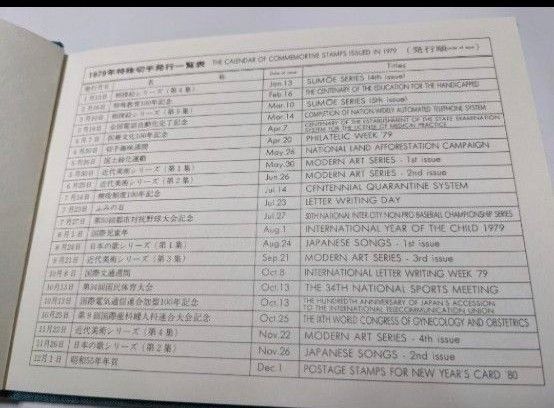 1979年特殊切手発行一覧表 THE CALENDAR OF COMMEMORTIVE STAMPS ISSUED IN 1979 (発行順 order of issue)
発行月日 名 称 Date of issue Titles
1月13日 相撲絵シリーズ(第4集) Jan.13 SUMŌE SERIES (4th issue)
2月16日 特殊教育100年記念 Feb.16 THE CENTENARY OF THE EDUCATION FOR THE HANDICAPPED
3月10日 相撲絵シリーズ(第5集) Mar.10 SUMŌE SERIES (5th issue)
3月14日 全国電話自動化完了記念 Mar.14 COMPLETION OF NATION-WIDELY AUTOMATED TELEPHONE SYSTEM
4月7日 医療文化100年記念 Apr.7 CENTENARY OF THE ESTABLISHMENT OF THE STATE EXAMINATION SYSTEM FOR THE LICENSE OF MEDICAL PRACTICE
4月20日 切手趣味週間 Apr.20 PHILATELIC WEEK '79
5月26日 国土緑化運動 May.26 NATIONAL LAND AFFORESTATION CAMPAIGN
5月30日 近代美術シリーズ(第1集) May.30 MODERN ART SERIES - 1st issue
6月25日 近代美術シリーズ(第2集) Jun.26 MODERN ART SERIES - 2nd issue
7月14日 検疫制度100年記念 Jul.14 CENTENNIAL QUARANTINE SYSTEM
7月23日 ふみの日 Jul.23 LETTER WRITING DAY
7月27日 第50回都市対抗野球大会記念 Jul.27 50TH NATIONAL INTER-CITY NON-PRO BASEBALL CHAMPIONSHIP SERIES
8月1日 国際児童年 Aug.1 INTERNATIONAL YEAR OF THE CHILD 1979
8月24日 日本の歌シリーズ(第1集) Aug.24 JAPANESE SONGS - 1st issue
9月21日 近代美術シリーズ(第3集) Sep.21 MODERN ART SERIES - 3rd issue
10月8日 国際文通週間 Oct.8 INTERNATIONAL LETTER WRITING WEEK '79
10月13日 第34回国民体育大会 Oct.13 THE 34TH NATIONAL SPORTS MEETING
10月13日 国際電気通信連合加盟100年記念 Oct.13 THE HUNDREDTH ANNIVERSARY OF JAPAN'S ACCESSION TO THE INTERNATIONAL TELECOMMUNICATION UNION
10月25日 第9回国際産科婦人科連合大会記念 Oct.25 THE IXTH WORLD CONGRESS OF GYNECOLOGY AND OBSTETRICS
11月22日 近代美術シリーズ(第4集) Nov.22 MODERN ART SERIES - 4th issue
11月26日 日本の歌シリーズ(第2集) Nov.26 JAPANESE SONGS - 2nd issue
12月1日 昭和55年年賀 Dec.1 POSTAGE STAMPS FOR NEW YEAR'S CARD '80